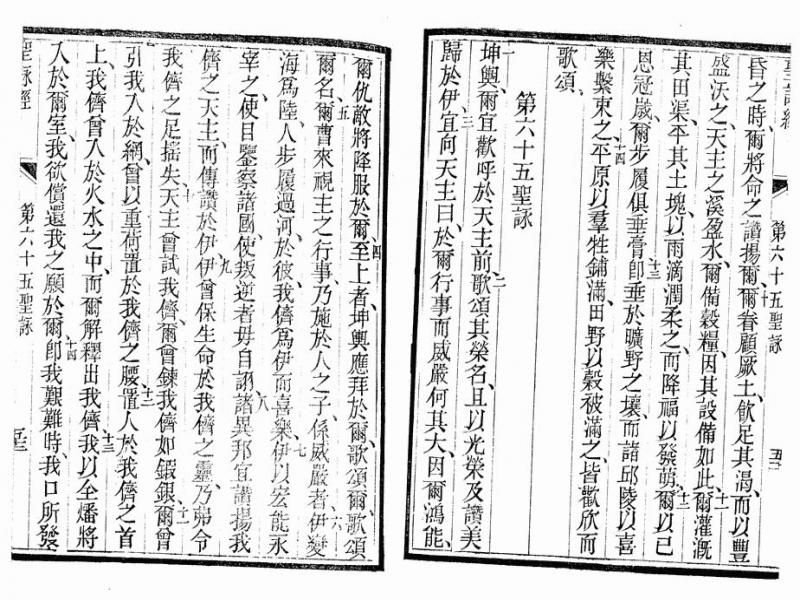 聖詠經 第六十五聖詠
昏之時、爾將命之讚揚爾、十爾眷顧厥土、飲足其渴、而以豐
盛沃之、天主之溪盈水、爾備穀糧、因其設備如此、十一爾灌漑
其田渠、平其土塊、以雨滴潤柔之、而降福以發萌、十二爾以己
恩冠歲、爾步履俱垂膏、十三卽垂於曠野之壤、而諸邱陵以喜
樂繫束之、十四平原以羣牲鋪滿、田野以穀被滿之、皆歡欣而
歌頌、
第六十五聖詠
一坤輿、爾宜歡呼於天主前、二歌頌其榮名、且以光榮及讚美
歸於伊、三宜向天主曰、於爾行事而威嚴何其大、因爾鴻能、
爾仇敵將降服於爾、四至上者、坤輿應拜於爾、歌頌爾、歌頌
爾名、五爾曹來視主之行事、乃施於人之子、係威嚴者、六伊變
海爲陸、人步履過河、於彼、我儕爲伊而喜樂、七伊以宏能永
宰之、使目鑒察諸國、使叛逆者毋自詡、八諸異邦、宜讚揚我
儕之天主、而傳讚於伊、九伊曾保生命於我儕之靈、乃弗令
我儕之足搖失、十天主曾試我儕、爾曾鍊我儕如鍛銀、十一爾曾
引我入於網、曾以重荷置於我儕之腰、十二置人於我儕之首
上、我儕曾入於火水之中、而爾解釋出我儕、十三我以全燔將
入於爾室、我欲償還我之願於爾、十四卽我艱難時、我口所發
聖詠經 第六十五聖詠